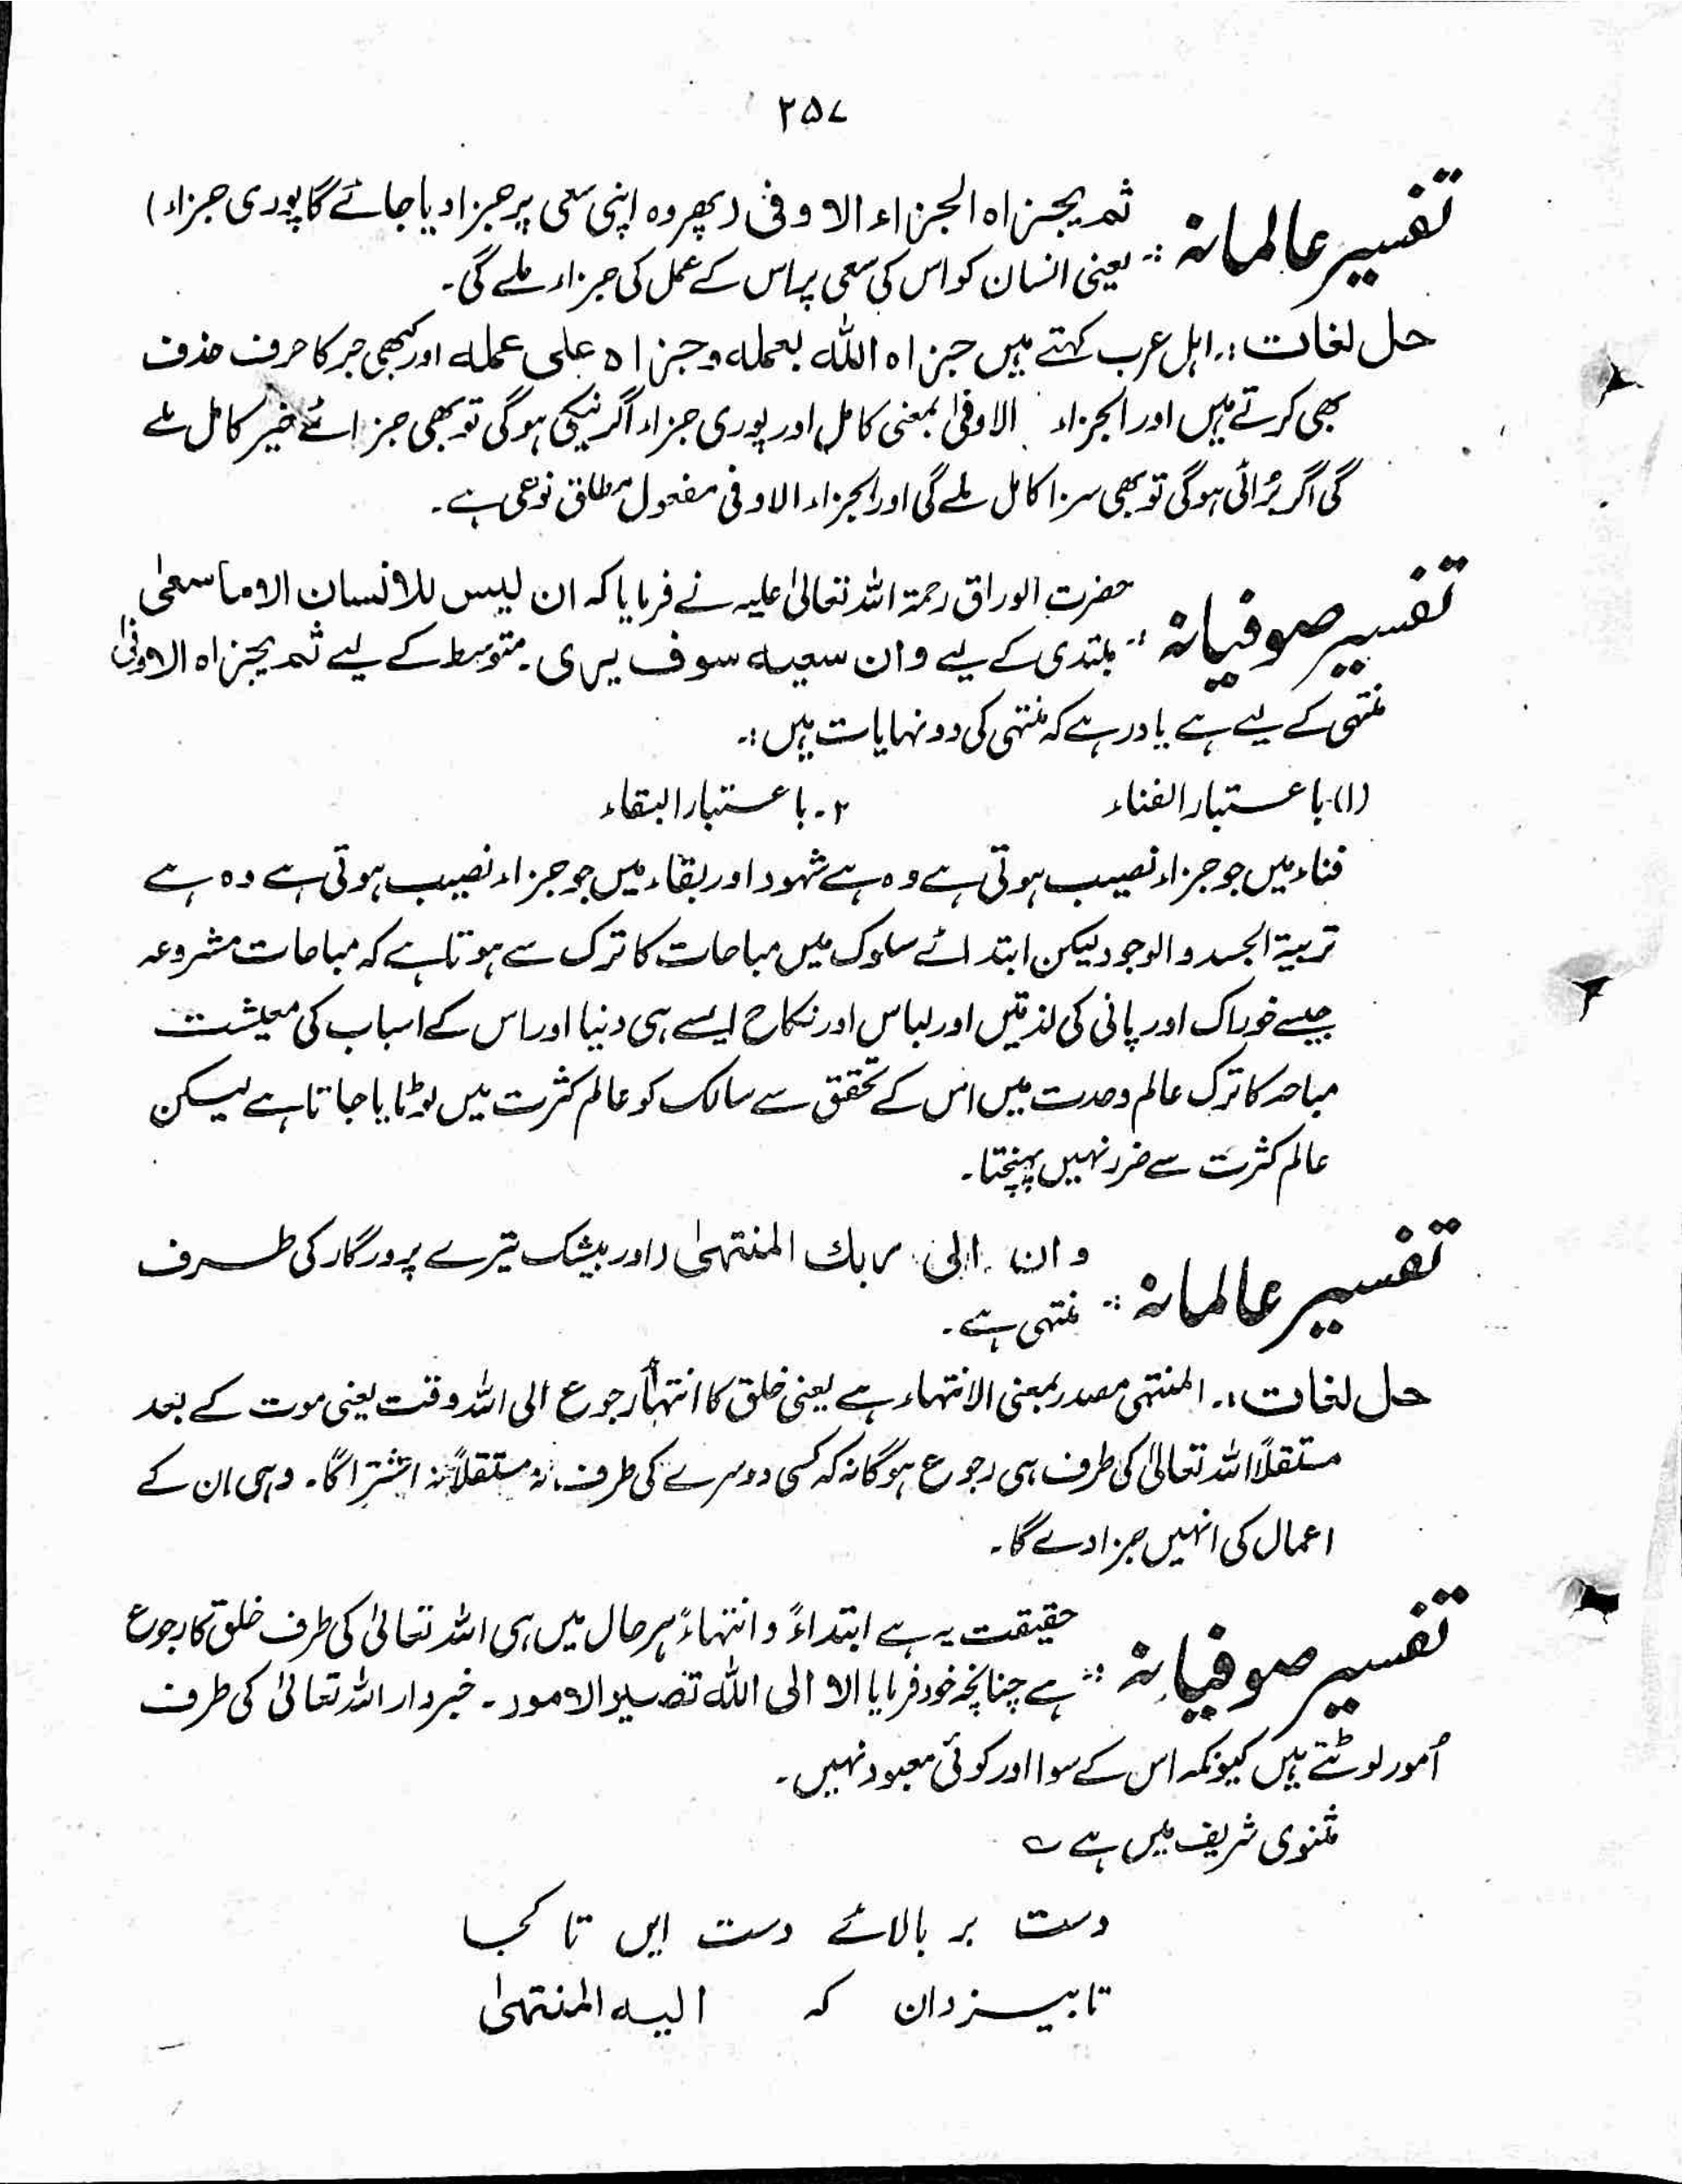 ۲۵۷
تفسیر عالمانہ :- ثم یجزاہ الجزاء الاوفی (پھر وہ اپنی سعی پر جزا دیا جائے گا پوری جزاء)
یعنی انسان کو اس کی سعی پر اس کے عمل کی جزاء ملے گی۔
حل لغات :۔ اہل عرب کہتے ہیں جزاہ اللہ بعملہ وجزاہ علی عملہ اور کبھی جر کا حرف حذف
بھی کرتے ہیں اور الجزاء الاوفیٰ بمعنی کامل اور پوری جزاء اگر نیکی ہوگی تو بھی جزائے خیر کامل ملے
گی اگر بُرائی ہوگی تو بھی سزا کامل ملے گی اور الجزاء الاوفی مفعول مطلق نوعی ہے۔
تفسیر صوفیانہ :- حضرت الوراق رحمۃ اللہ تعالیٰ علیہ نے فرمایا کہ ان لیس للانسان الا ما سعیٰ
مبتدی کے لیے وان سعیہ سوف یری۔ متوسط کے لیے ثم یجزاہ الاوفیٰ
منتہی کے لیے ہے یاد رہے کہ منتہی کی دو نہایات ہیں :۔
(۱)۔ باعتبار الفناء ۲۔ باعتبار البقاء
فناء میں جو جزاء نصیب ہوتی ہے وہ ہے شہود اور بقاء میں جو جزاء نصیب ہوتی ہے وہ ہے
تربیۃ الجسد والوجود لیکن ابتدائے سلوک میں مباحات کا ترک سے ہوتا ہے کہ مباحات مشروعہ
جیسے خوراک اور پانی کی لذتیں اور لباس اور نکاح ایسے ہی دنیا اور اس کے اسباب کی معیشت
مباحہ کا ترک عالم وحدت میں اس کے تحقق سے سالک کو عالم کثرت میں لوٹایا جاتا ہے لیکن
عالم کثرت سے ضرر نہیں پہنچتا۔
تفسیر عالمانہ :- وان الیٰ ربك المنتھیٰ (اور بیشک تیرے پرورگار کی طرف
منتہی ہے۔
حل لغات :۔ المنتہی مصدر بمعنی الانتہاء ہے یعنی خلق کا انتہاً رجوع الی اللہ وقت یعنی موت کے بعد
مستقلاً اللہ تعالیٰ کی طرف ہی رجوع ہوگا نہ کہ کسی دوسرے کی طرف، نہ مستقلاً نہ اشتراگا۔ وہی ان کے
اعمال کی انہیں جزا دے گا۔
تفسیر صوفیانہ :- حقیقت یہ ہے ابتداءً و انتہاءً ہر حال میں ہی اللہ تعالیٰ کی طرف خلق کا رجوع
ہے چنانچہ خود فرمایا الا الی اللہ تصیر الامور۔ خبردار اللہ تعالیٰ کی طرف
اُمور لوٹتے ہیں کیونکہ اس کے سوا اور کوئی معبود نہیں۔
مثنوی شریف میں ہے ؎
دست بر بالائے دست ایں تا کجا
تا بیزدان کہ الیہ المنتھیٰ